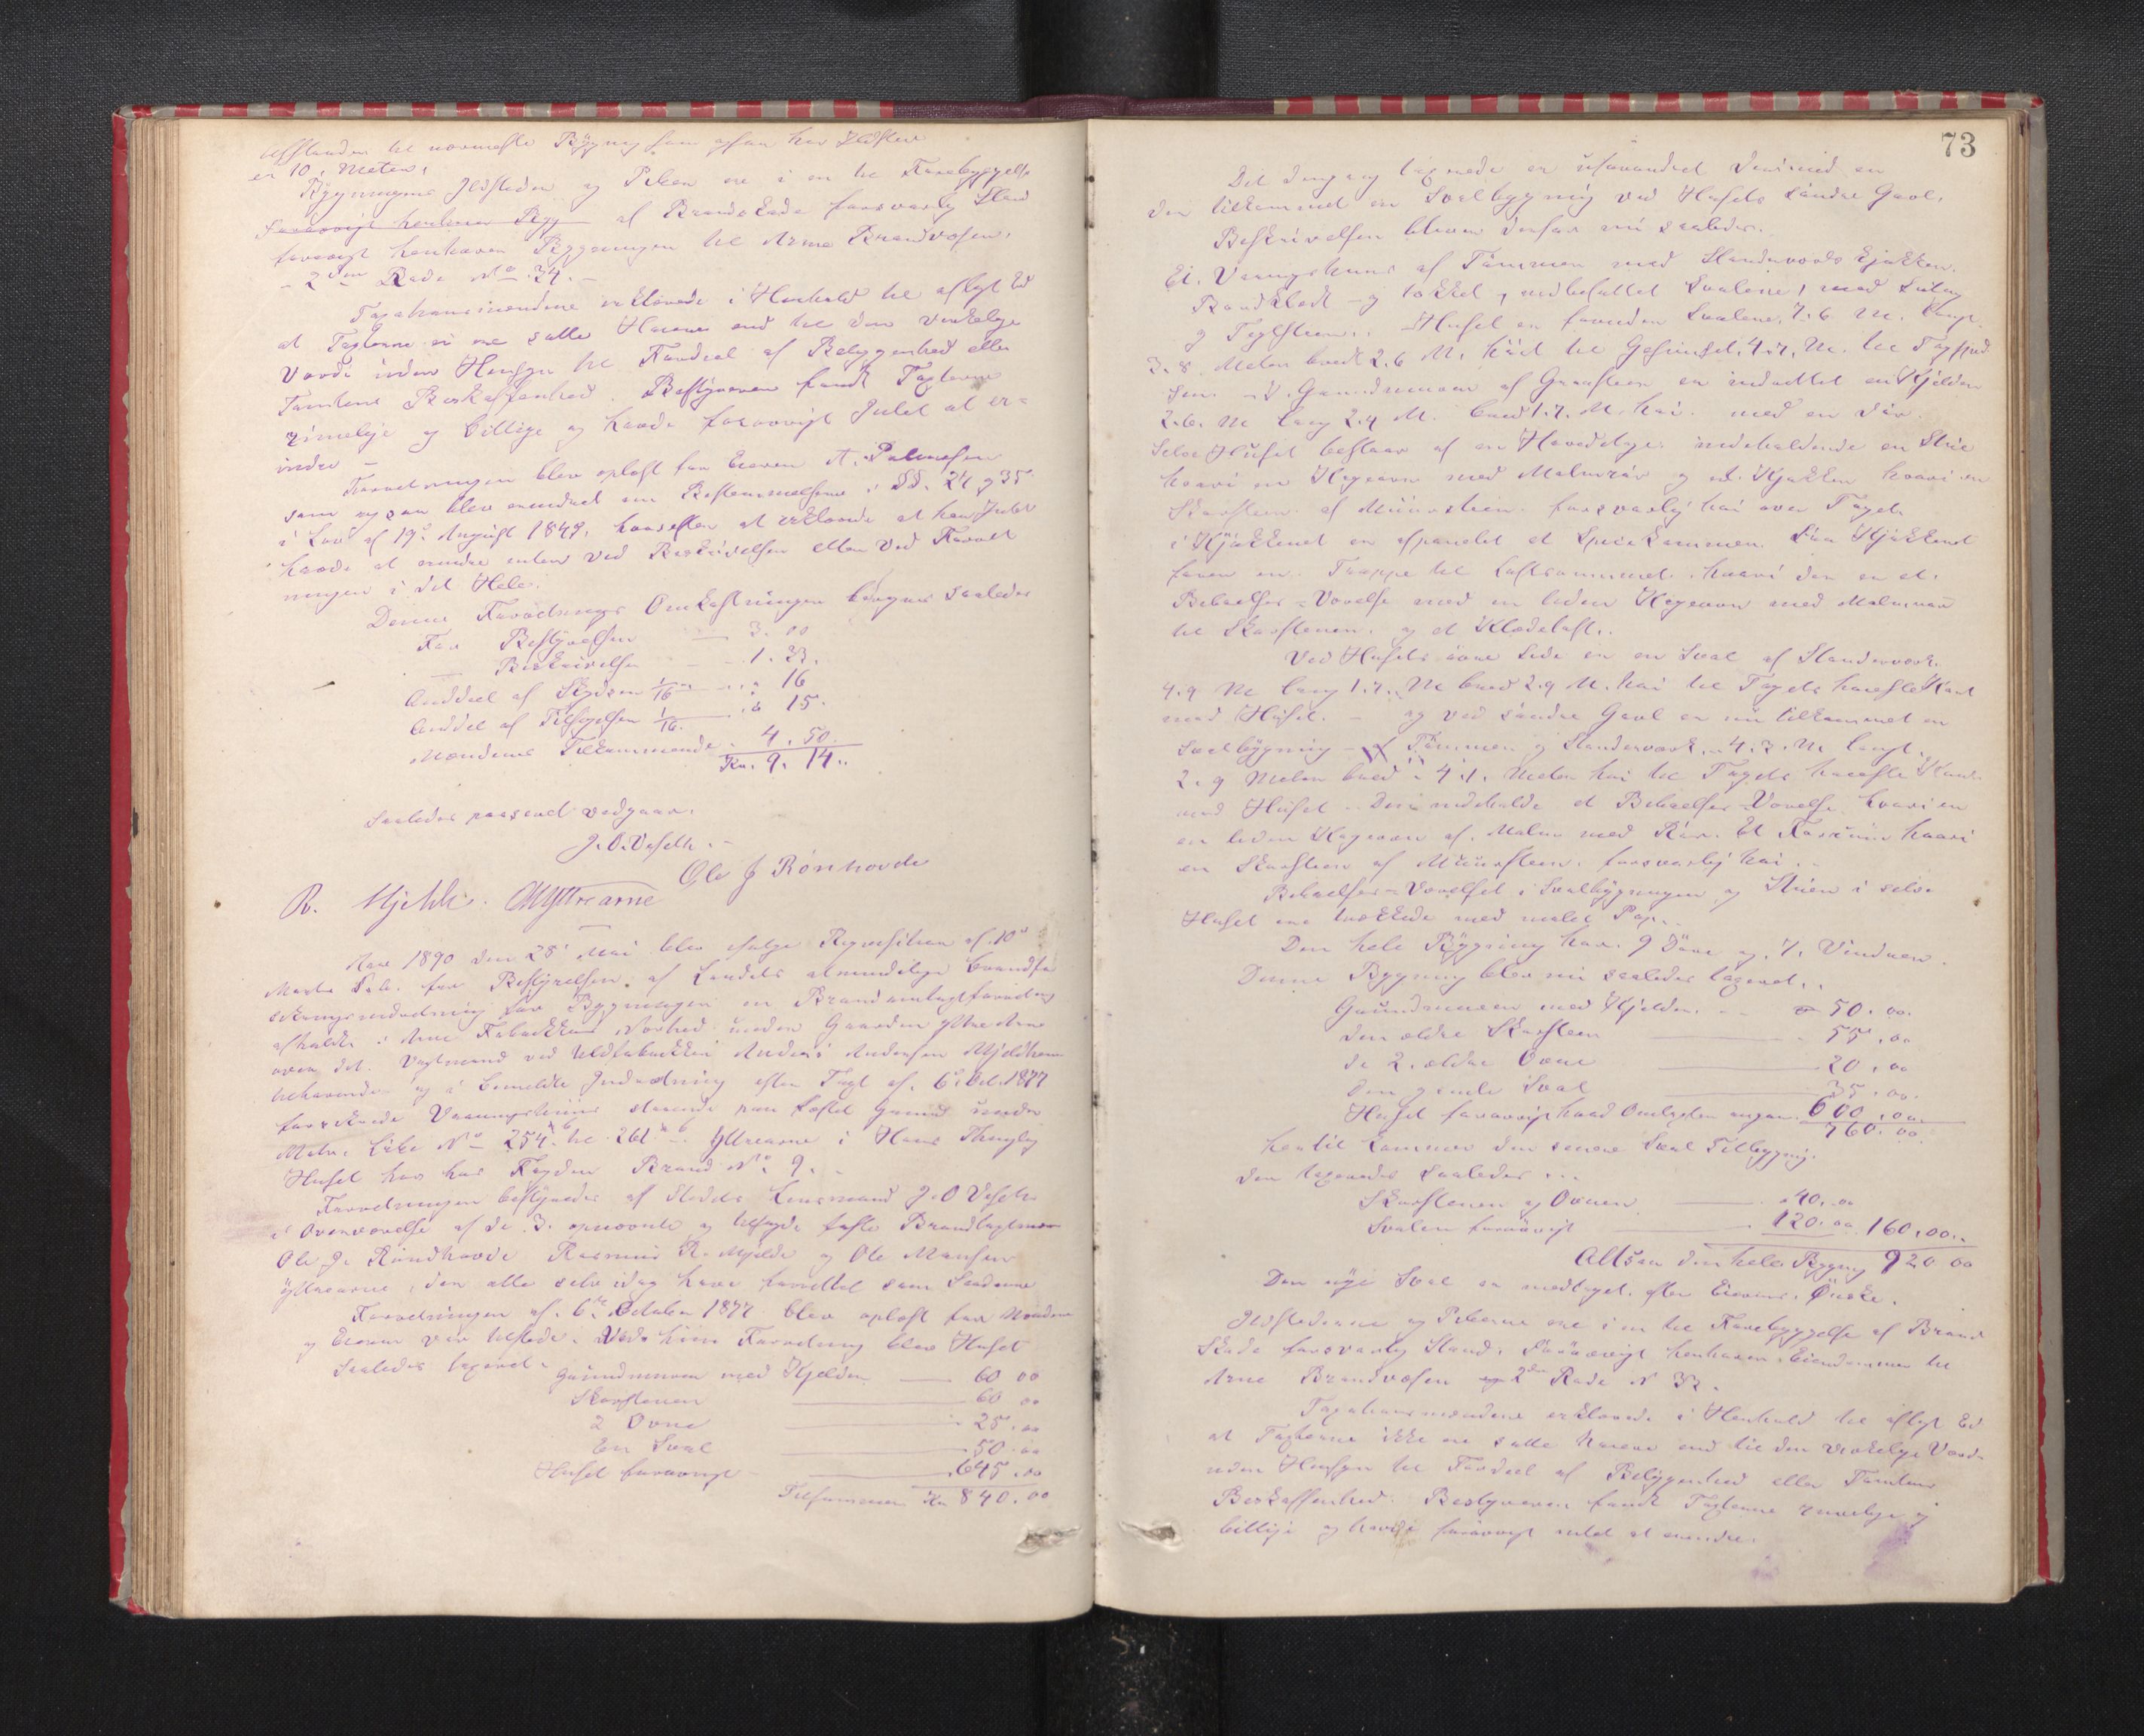 Afstanden til nærmeste Bygning som ogsaa har Ildsted
er 10, Meter,
Bygningens Ildsteder og Piber ere i en til Forebyggelse
forøvrigt henhører Byg af Brandskade forsvarlig Stand
forøvrigt henhører Bygningen til Arne Brandvæsen,
- 2den Rode No 34. -
Taxationsmændene erklærede i Henhold til aflagt Ed
at Taxterne ei ere satte Høiere end til den virkelige
Værdi uden Hensyn til Fordeel af Beliggenhed eller
Tomtens Beskaffenhed. Bestyreren fandt Taxterne
rimelige og billige og havde forøvrigt Intet at er=
indre -
Forretningen blev oplæst for Eieren A. Paulsen
som ogsaa blev erindret om Bestemmelserne i §§. 24 og 35
i Lov af 19de August 1849, hvorefter at erklærede at han Intet
havde at erindre enten ved Beskrivelsen eller ved Forret
ningen i det Hele.
Denne Forretnings Omkostninger beregnes saaledes
For Bestyrelsen 3. 00
Beskrivelsen 1. 33.
Anddeel af Skydsen 1/16 16
Anddel af Tilsigelsen 1/16. 15.
Mændenes Tilkommende. 4. 50.
Kr. 9. 14..
Saaledes passeret vedgaaer.
J. O. Veseth. -
Ole J Rönhovde
R. Mjelde. OMYttrearne
Aar 1890 den 28de Mai blev ifølge Reqvisition af 10de
Marts d.A. fra Bestyrelsen af Landets almindelige Brandfor
sikringsindretning for Bygninger en Brandomtaxtforretning
afholdt i Arne Fabrikker Norhed under Gaarden Yttre Arne
over det. Vagtmand ved Uldfabrikken Anders Andersen Mjeldheim
tilhørende og i bemeldte Indretning efter Taxt af 6te Oct. 1877
forsikrede Vaaningshuus staaende paa fæstet Grund under
Matr. Løbe No 254 b til 261 b Yttrearne i Haus Thinglag
Huset har har Følgden Brand No 9. -
Forretningen bestyredes af Stedets Lensmand J. O Veseth
i Overværelse af de 3. opnævnte og tilsagte faste Brandtaxtmænd
Ole J. Röndhovde Rasmus R. Mjelde og Ole Monsen
Yttrearne, der alle selv idag have forrettet som Saadanne
Forretningen af 6te October 1877 blev oplæst for Mændene
og Eieren var tilstede. Ved hiin Forretning blev Huset
saaledes taxeret.
Grundmuren med Kjelder 60 00
Skorstenen 60 00
2 Ovne 25. 00
En Sval 50. 00
Huset forøvrigt 645. 00
Tilsammen Kr 840. 00
73
Det dengang taxerede er uforandret Derimod er
der tilkommet en Svalbygning ved Husets søndre Gavl.
Beskrivelsen bliver derfor nu saaledes.
Et. Vaaningshuus af Tømmer med Standerværks Kjøkken.
Bordklædt og tækket, indbefattet Svalene, med Sutag
og Teglsteen. Huset er foruden Svalene 7.6 M. langt
3.8. Meter bredt 2.6 M, høit til Gesimset, 4.7, M. til Tagspid
sen. - I Grundmuren af Graasteen er indrettet en Kjelder
2.6. M lang 2.4 M. bred 1.7. M. høi. med en Dør.
Selve Huset bestaar af en Hovedetage indeholdende en Stue
hvori en Kogeovn med Malmrør og et Kjøkken hvori en
Skorsteen af Muursteen forsvarlig høi over Taget.
i Kjøkkenet er afpanelet et Spisekammer. Fra Kjøkkenet
fører en Trappe til Loftsrummet, hvori der er et.
Beboelses=Værelse med en liden Kogeovn med Malmrør
til Skorstenen, og et Klædeloft..
Ved Husets øvre Side er en Sval af Standerværk
4.9 M lang 1.7. M bred 2.9 M. høi til Tagets høieste Kant
mod Huset. - og ved søndre Gavl er nu tilkommet en
Svalbygning - af Tømmer og Standerværk, 4.3. M langt,
2.9 Meter bred, 4.1. Meter høi til Tagets høieste Kant
mod Huset. Den indeholder et Beboelses Værelse hvori en
en liden Kogeovn af Malm med Rør. Et Forrum hvori
en Skorsteen af Muursteen, forsvarlig høi..
Beboelses=Værelset i Svalbygningen og Stuen i selve
Huset ere trækkede med malet Pap..
Den hele Bygning har 9 Døre og 7. Vinduer.
Denne Bygning blev nu saaledes taxeret..
Grundmuren med Kjelder. 50. 00.
Den ældre Skorsteen 55. 00
de 2. ældre Ovne 20. 00
Den gamle Sval 35. 00.
Huset forøvrigt hvad Omtaxten angaar. 600. 00.
760. 00.
hertil kommer den senere Sval Tilbygning.
den taxeredes saaledes...
Skorstenen og Ovnen 40. 00
Svalen forøvrigt 120. 00 160. 00..
Altsaa den hele Bygning 920 00
Den nye Sval er medtaget efter Eierens Ønske.
Ildstederne og Piberne ere i en til Forebyggelse af Brand
Skade forsvarlig Stand. Forøvrigt henhører Eiendommen til
Arne Brandvæsen og 2den Rode N 32.
Taxationsmændene erklærede i Henhold til aflagt Ed
at Taxterne ikke ere satte høiere end til den virkelige Værdi
uden Hensyn til Fordeel af Beliggenhed eller Tomtens
Beskaffenhed. Bestyreren fandt Taxterne rimelige og
billige og havde forøvrigt intet at erindre.